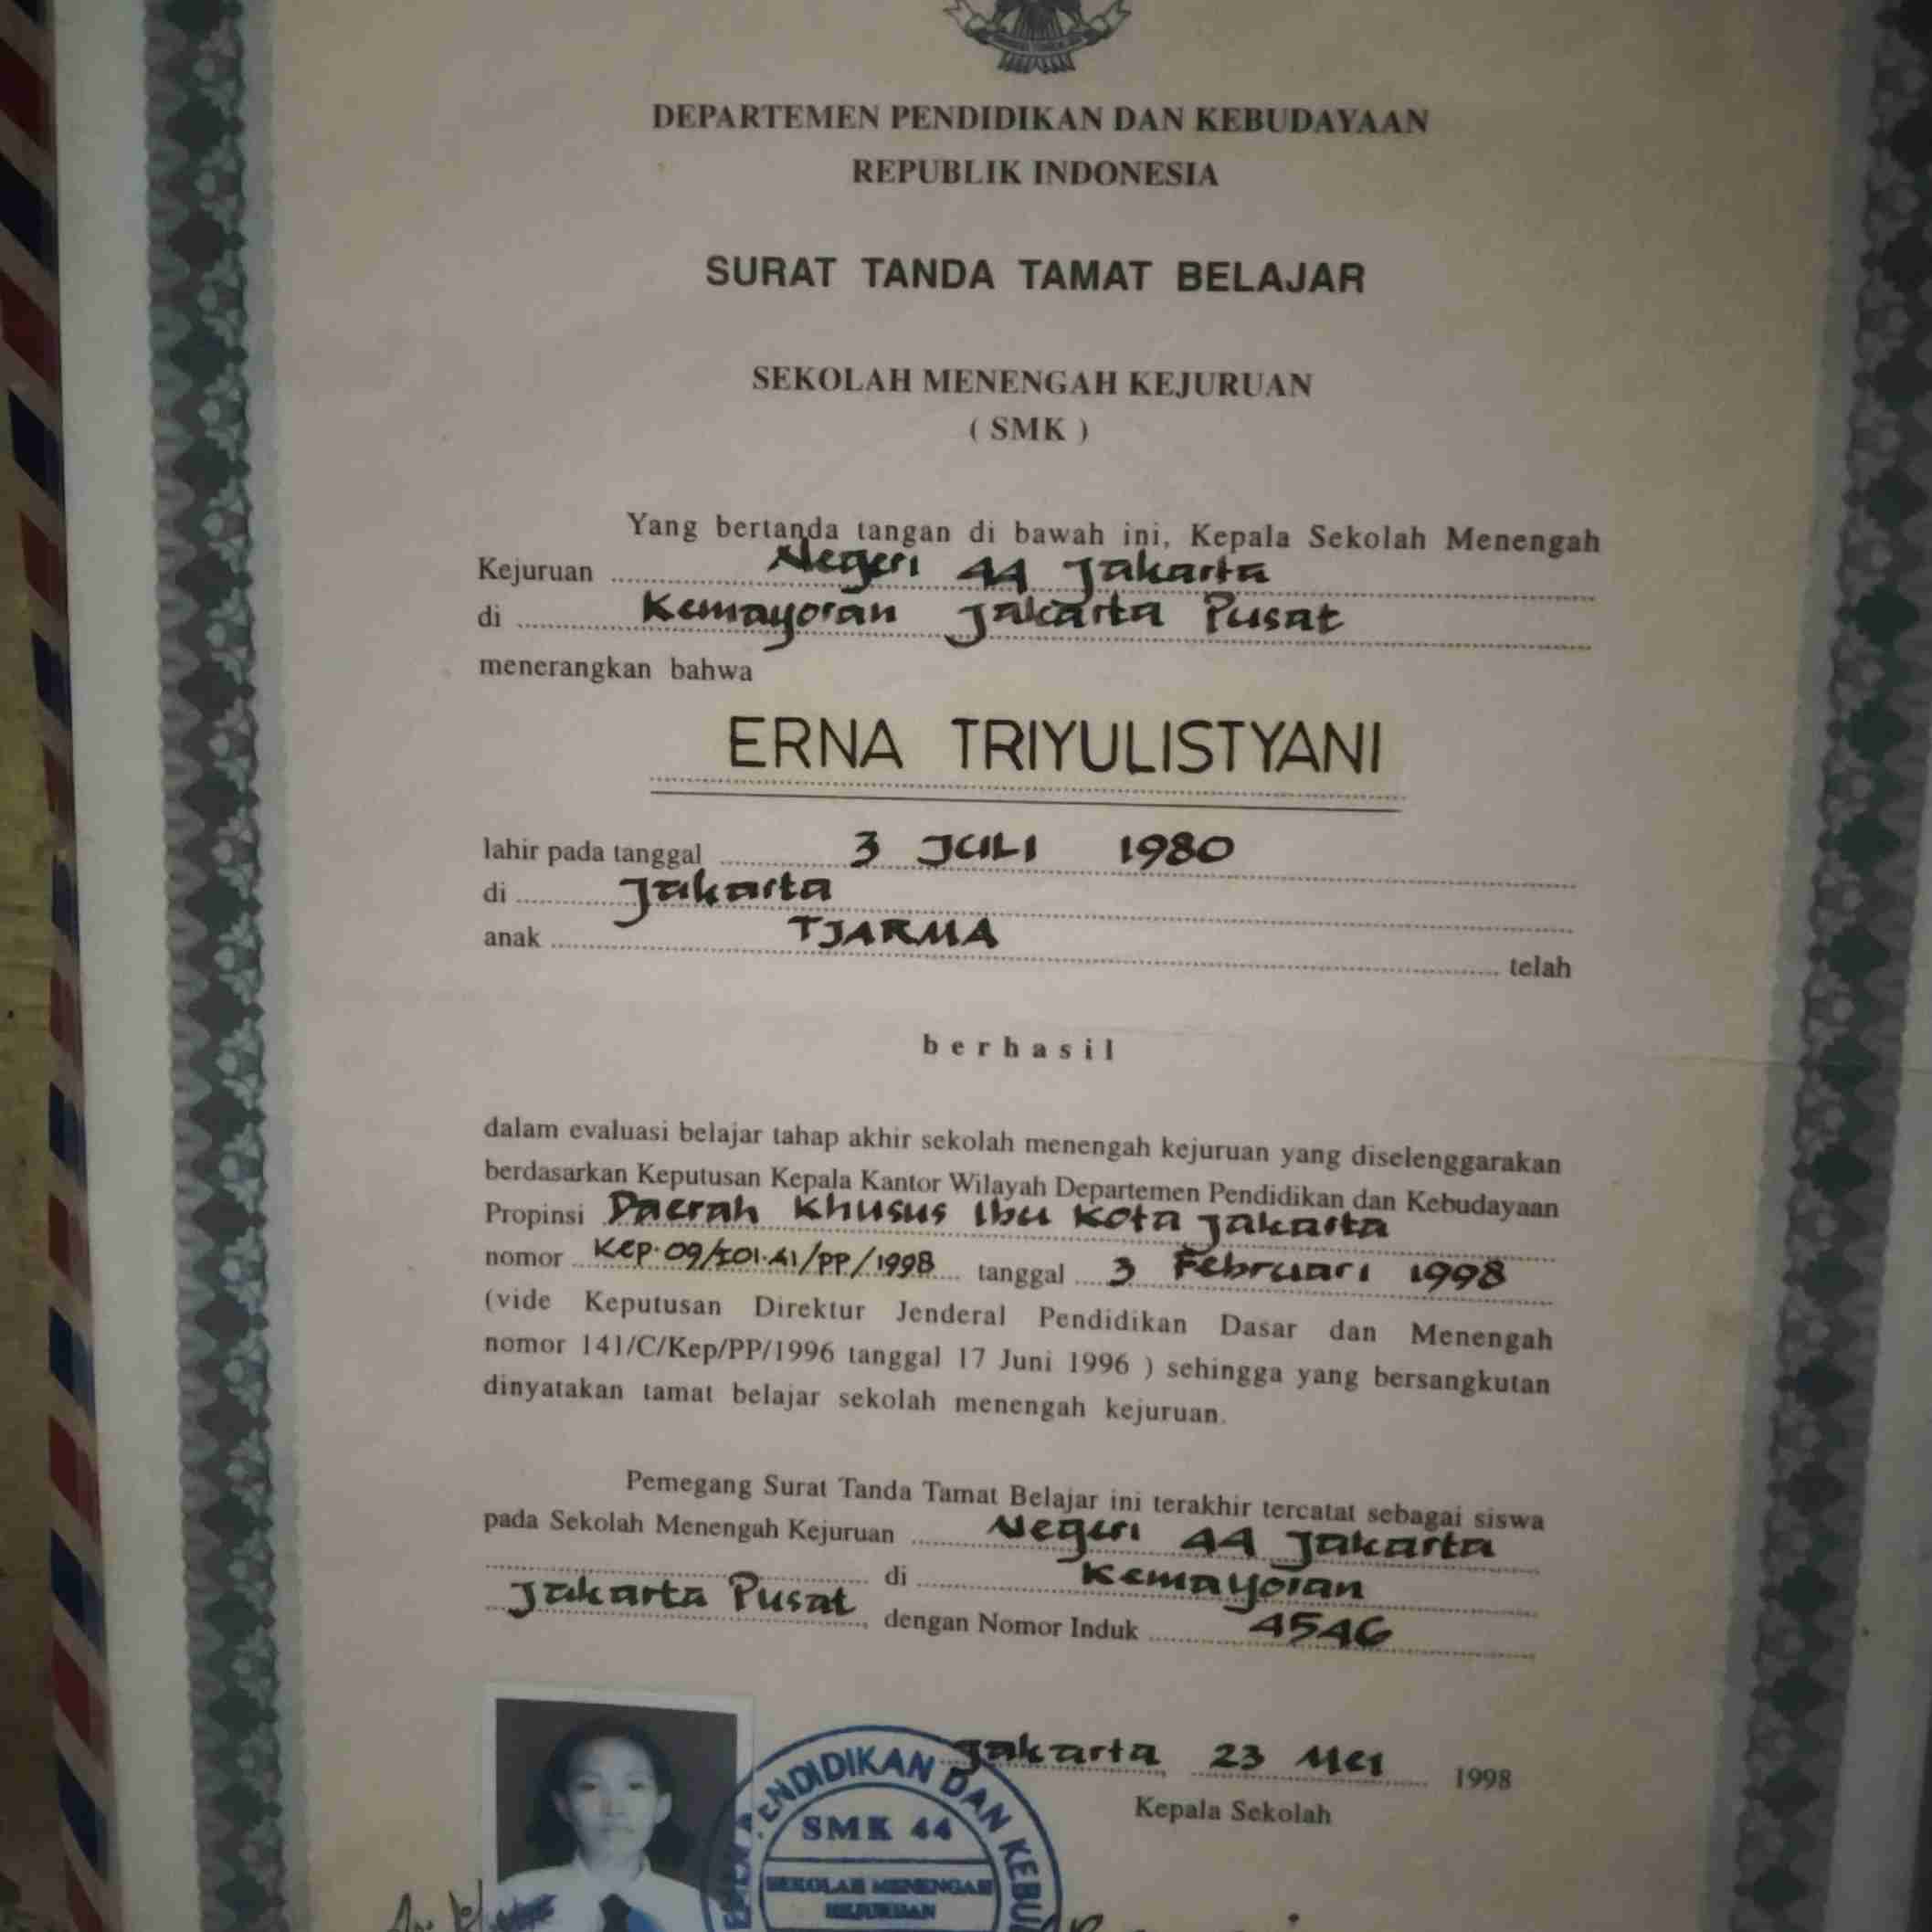 DEPARTEMEN PENDIDIKAN DAN KEBUDAYAAN
REPUBLIK INDONESIA
SURAT TANDA TAMAT BELAJAR
SEKOLAH MENENGAH KEJURUAN
( SMK )
Yang bertanda tangan di bawah ini, Kepala Sekolah Menengah
Kejuruan Negeri 44 Jakarta
di Kemayoran Jakarta Pusat
menerangkan bahwa
ERNA TRIYULISTYANI
lahir pada tanggal 3 JULI 1980
di Jakarta
anak TJARMA telah
berhasil
dalam evaluasi belajar tahap akhir sekolah menengah kejuruan yang diselenggarakan
berdasarkan Keputusan Kepala Kantor Wilayah Departemen Pendidikan dan Kebudayaan
Propinsi Daerah Khusus Ibu Kota Jakarta
nomor Kep.09/I01.A1/PP/1998 tanggal 3 Februari 1998
(vide Keputusan Direktur Jenderal Pendidikan Dasar dan Menengah
nomor 141/C/Kep/PP/1996 tanggal 17 Juni 1996 ) sehingga yang bersangkutan
dinyatakan tamat belajar sekolah menengah kejuruan.
Pemegang Surat Tanda Tamat Belajar ini terakhir tercatat sebagai siswa
pada Sekolah Menengah Kejuruan Negeri 44 Jakarta
di Kemayoran
Jakarta Pusat, dengan Nomor Induk 4546
Jakarta, 23 Mei 1998
Kepala Sekolah
PENDIDIKAN DAN
SMK 44
SEKOLAH MENENGAH
KEJURUAN